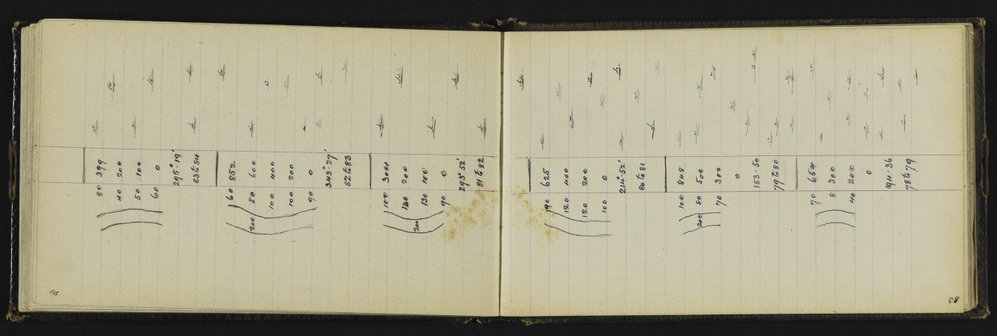 50 399
40 200
50 100
60 0
295°.19'
83 to 84
60 852
200 50 600
100 400
100 200
90 0
343°.27'
82 to 83
100 304
120 200
200 130 100
90 0
293°.52'
81 to 82
90 625
120 400
120 200
100 0
214°.52'
80 to 81
100 808
200 80 500
70 300
0
153.50
79 to 80
70 664
8 300
40 200
0
194.36
78 to 79